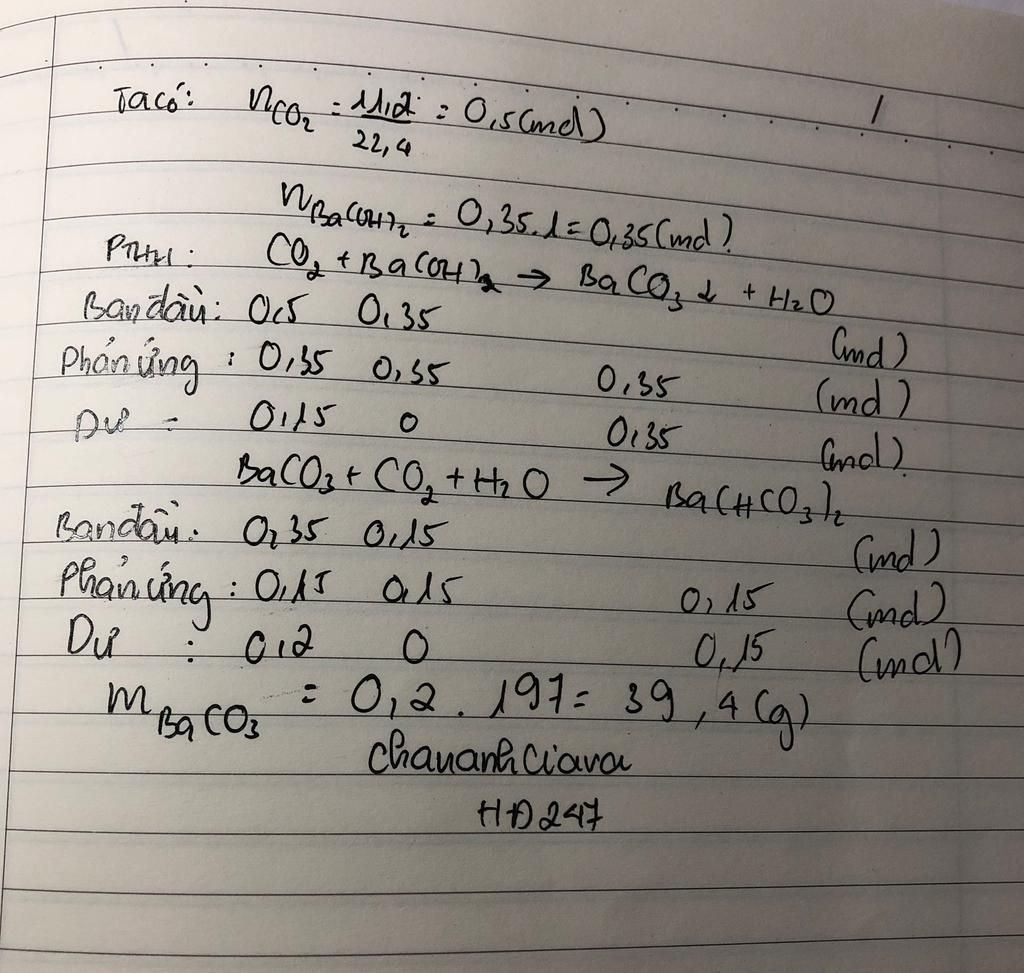 Ta có: nCO₂ = 11,2/22,4 = 0,5 (mol)
nBa(OH)₂ = 0,35.1 = 0,35 (mol).
PTHH: CO₂ + Ba(OH)₂ → BaCO₃↓ + H₂O
Ban đầu: 0,5 0,35 (mol)
Phản ứng: 0,35 0,35 0,35 (mol)
Dư: 0,15 0 0,35 (mol)
BaCO₃ + CO₂ + H₂O → Ba(HCO₃)₂
Ban đầu: 0,35 0,15 (mol)
Phản ứng: 0,15 0,15 0,15 (mol)
Dư: 0,2 0 0,15 (mol)
mBaCO₃ = 0,2 . 197 = 39,4 (g)
ChauanhCiava
HĐ247